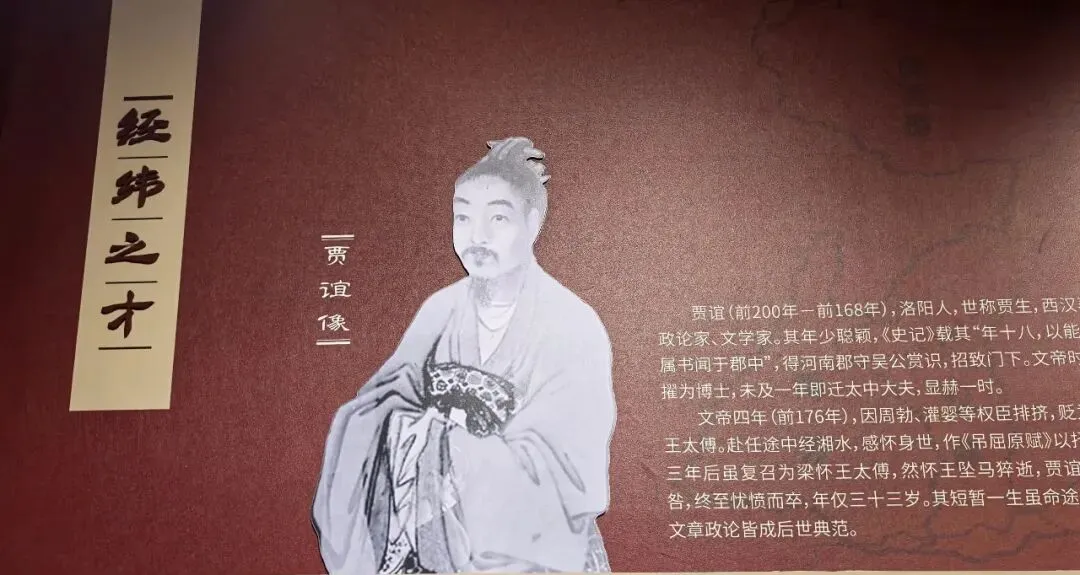 经纬之才
贾谊像
贾谊(前200年－前168年),洛阳人,世称贾生,西汉
政论家、文学家。其年少聪颖,《史记》载其“年十八,以能
属书闻于郡中”,得河南郡守吴公赏识,招致门下。文帝时
擢为博士,未及一年即迁太中大夫,显赫一时。
文帝四年(前176年),因周勃、灌婴等权臣排挤,贬
王太傅。赴任途中经湘水,感怀身世,作《吊屈原赋》以
三年后虽复召为梁怀王太傅,然怀王坠马猝逝,贾谊
咎,终至忧愤而卒,年仅三十三岁。其短暂一生虽命途
文章政论皆成后世典范。